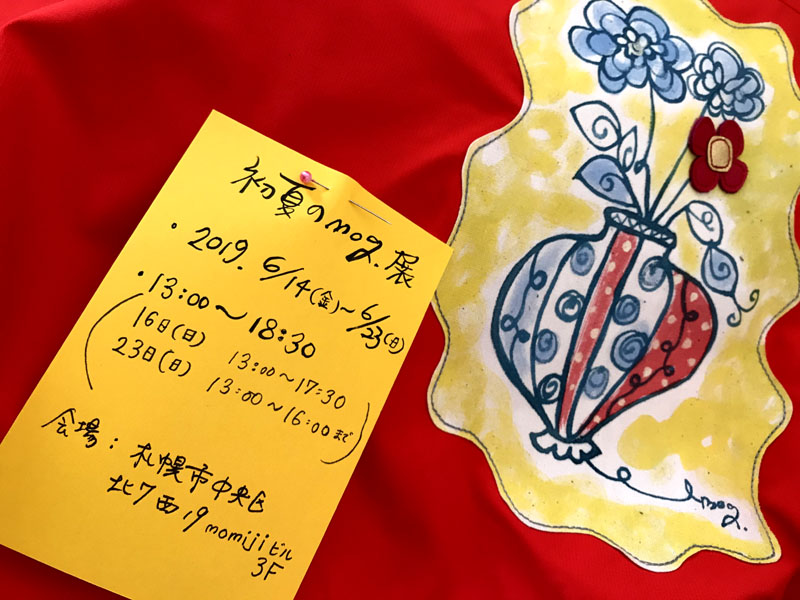 初夏のmog.展
・2019. 6/14(金)〜6/23(日)
・13:00〜18:30
(16日(日) 13:00〜17:30
23日(日) 13:00〜16:00まで)
会場：札幌市中央区
北7西19 momijiビル
3F
mog.